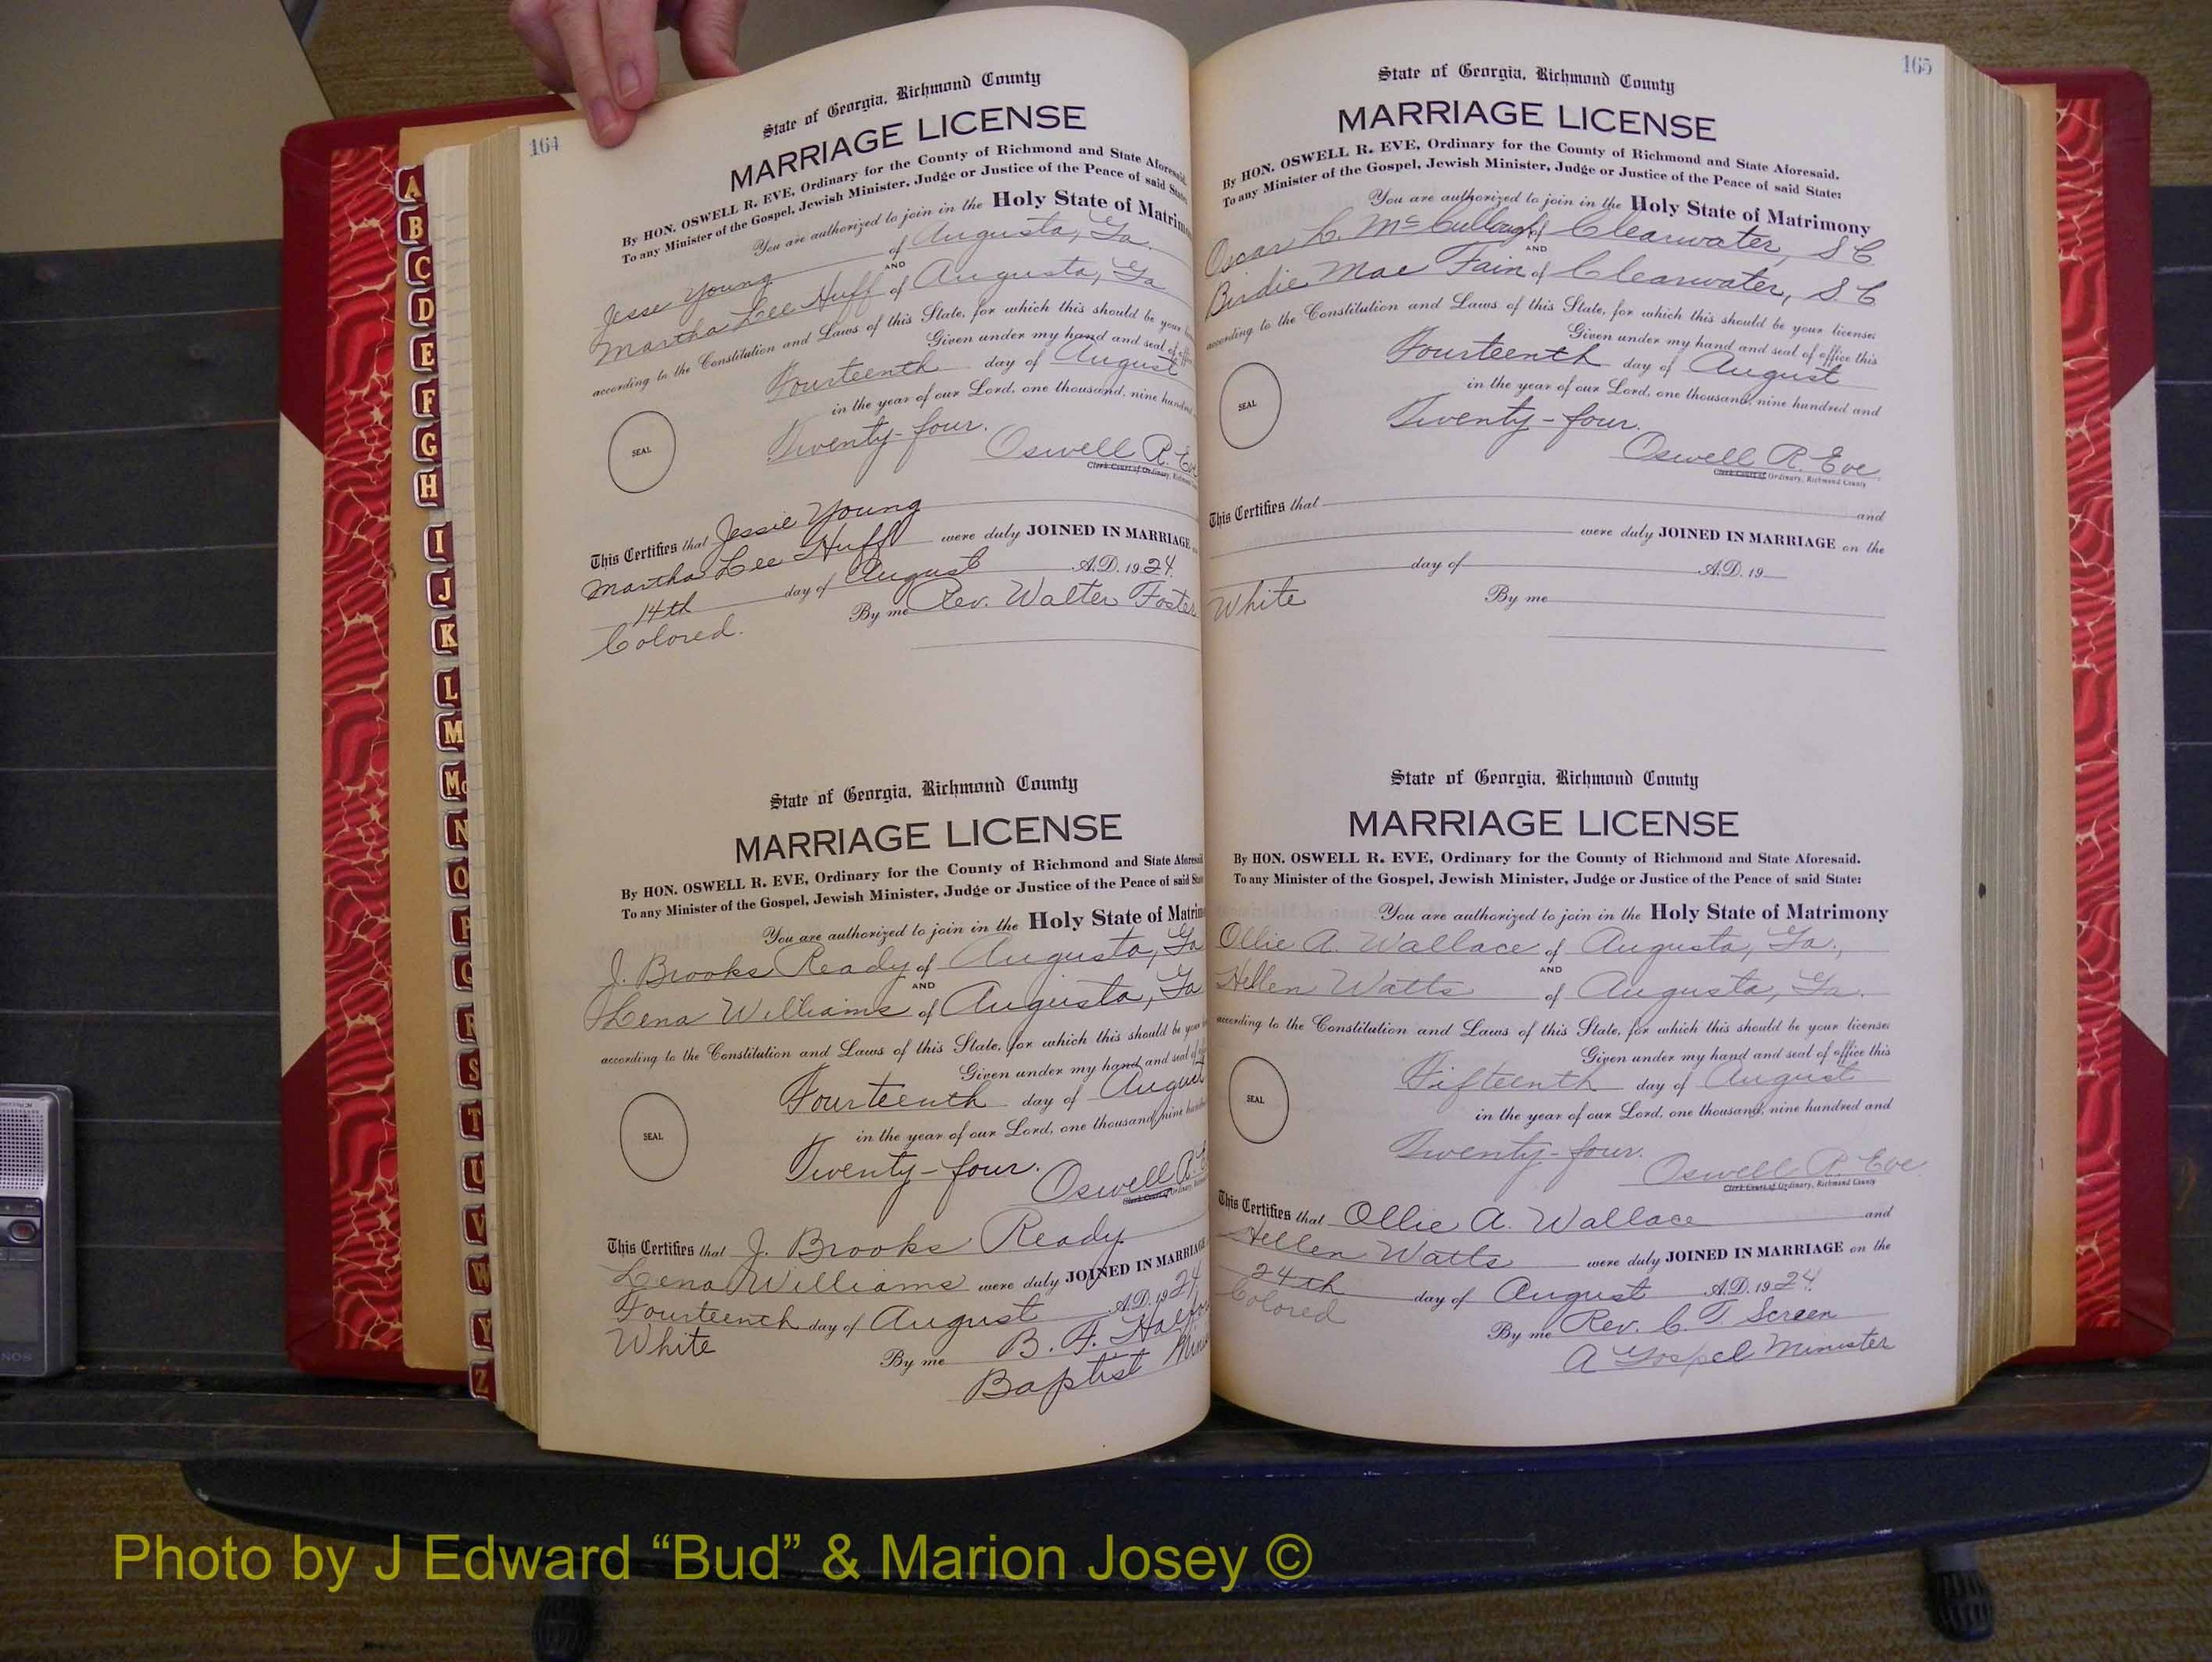 164
State of Georgia, Richmond County
MARRIAGE LICENSE
By HON. OSWELL R. EVE, Ordinary for the County of Richmond and State Aforesaid.
To any Minister of the Gospel, Jewish Minister, Judge or Justice of the Peace of said State
You are authorized to join in the Holy State of Matrimo
Jesse Young of Augusta, Ga.
AND
Martha Lee Huff of Augusta, Ga
according to the Constitution and Laws of this State, for which this should be your
Given under my hand and seal of office
Fourteenth day of August
in the year of our Lord, one thousand, nine hundred
Twenty-four.
SEAL
Oswell R. Eve
Clerk Court of Ordinary, Richmond
This Certifies that Jessie Young
Martha Lee Huff were duly JOINED IN MARRIAGE
14th day of August A.D. 1924.
Colored. By me Rev. Walter Foster
State of Georgia, Richmond County
MARRIAGE LICENSE
By HON. OSWELL R. EVE, Ordinary for the County of Richmond and State Aforesaid
To any Minister of the Gospel, Jewish Minister, Judge or Justice of the Peace of said State
You are authorized to join in the Holy State of Matrim
J. Brooks Ready of Augusta, Ga
AND
Lena Williams of Augusta, Ga
according to the Constitution and Laws of this State, for which this should be your
Given under my hand and seal of
Fourteenth day of August
in the year of our Lord, one thousand, nine hundred
Twenty-four.
SEAL
Oswell R. E
Clerk Court of Ordinary,
This Certifies that J. Brooks Ready
Lena Williams were duly JOINED IN MARRIAGE
Fourteenth day of August A.D. 1924
White By me B. F.
Baptist
165
State of Georgia, Richmond County
MARRIAGE LICENSE
By HON. OSWELL R. EVE, Ordinary for the County of Richmond and State Aforesaid.
To any Minister of the Gospel, Jewish Minister, Judge or Justice of the Peace of said State:
You are authorized to join in the Holy State of Matrimony
Oscar L. McCullough of Clearwater, S C
AND
Birdie Mae Fain of Clearwater, S. C
according to the Constitution and Laws of this State, for which this should be your license:
Given under my hand and seal of office this
Fourteenth day of August
in the year of our Lord, one thousand, nine hundred and
Twenty-four.
SEAL
Oswell R. Eve
Clerk Court of Ordinary, Richmond County
This Certifies that and
were duly JOINED IN MARRIAGE on the
day of A.D. 19
White By me
State of Georgia, Richmond County
MARRIAGE LICENSE
By HON. OSWELL R. EVE, Ordinary for the County of Richmond and State Aforesaid.
To any Minister of the Gospel, Jewish Minister, Judge or Justice of the Peace of said State:
You are authorized to join in the Holy State of Matrimony
Ollie A. Wallace of Augusta, Ga.,
AND
Hellen Watts of Augusta, Ga.
according to the Constitution and Laws of this State, for which this should be your license:
Given under my hand and seal of office this
Fifteenth day of August
in the year of our Lord, one thousand, nine hundred and
Twenty-four.
SEAL
Oswell R. Eve
Clerk Court of Ordinary, Richmond County
This Certifies that Ollie A. Wallace and
Hellen Watts were duly JOINED IN MARRIAGE on the
24th day of August A.D. 1924.
Colored By me Rev. C. T. Screen
A Gospel Minister
A
B
C
D
E
F
G
H
I
J
K
L
M
Mc
N
O
P
Q
R
S
T
U
V
W
Y
Z
Photo by J Edward “Bud” & Marion Josey ©